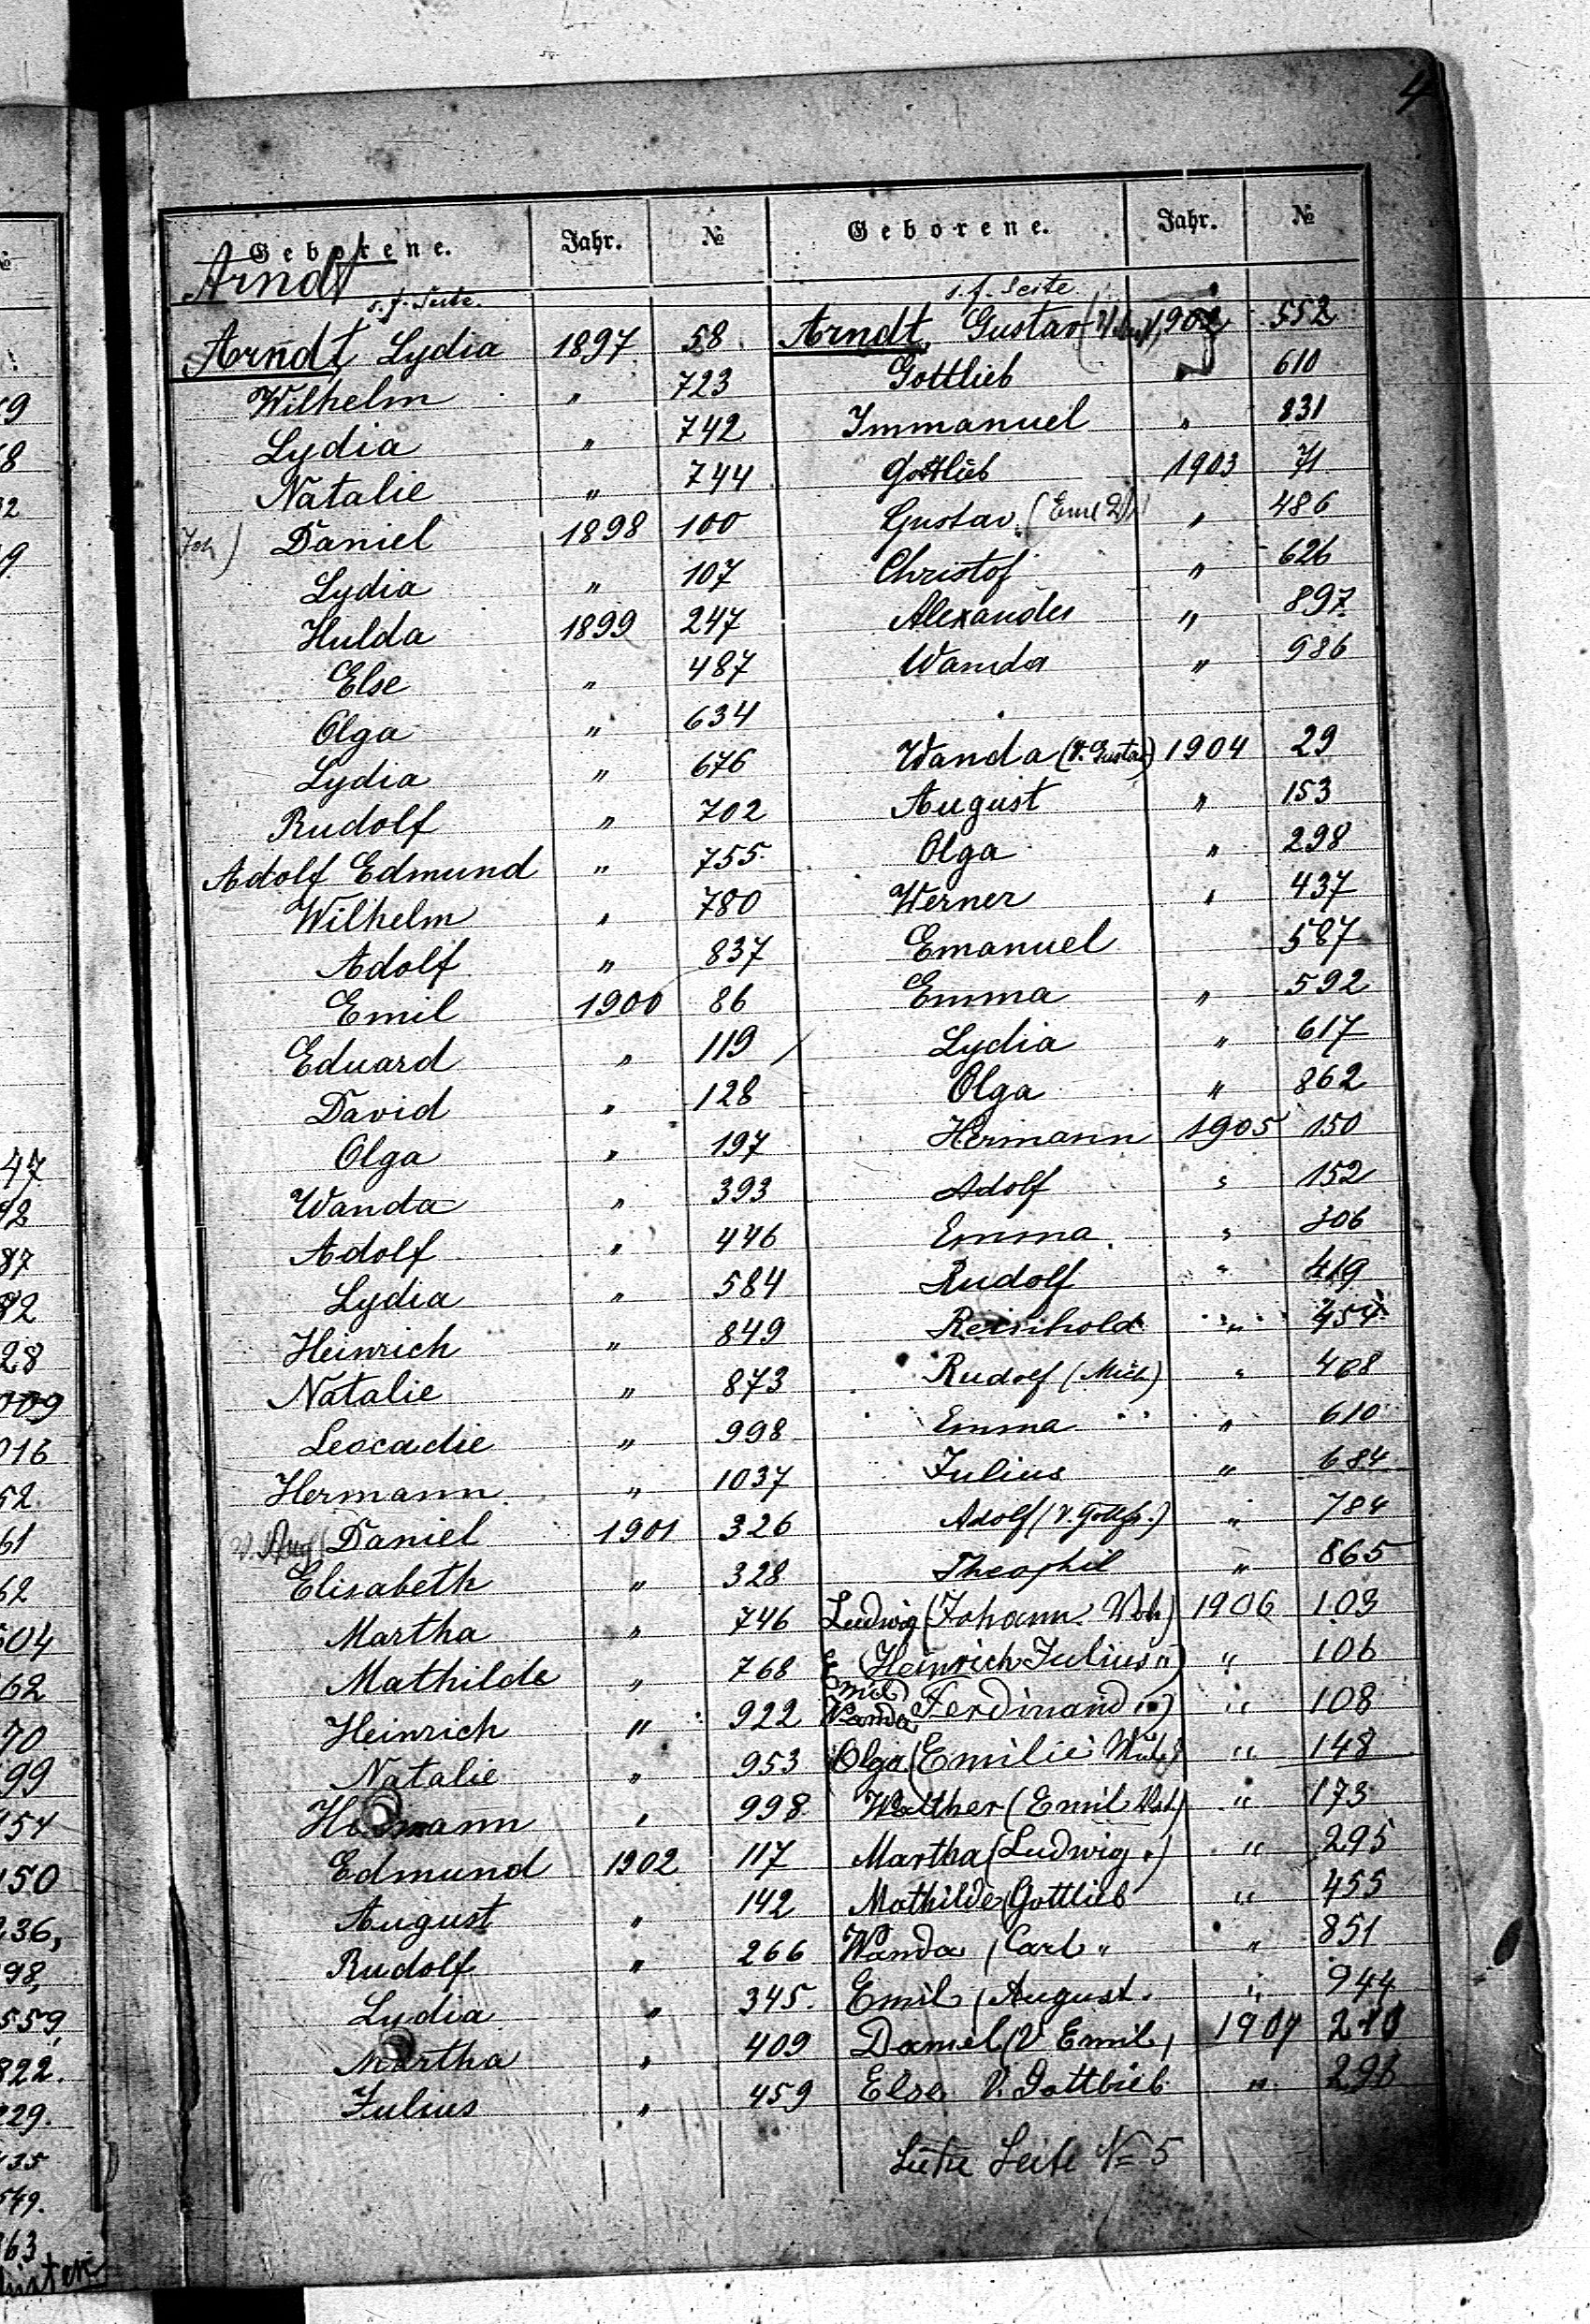 4
Geborene. Jahr. №
Arndt
s. f. Seite.
Arndt, Lydia 1897 58
Wilhelm " 723
Lydia " 742
Natalie " 744
Joh) Daniel 1898 100
Lydia " 107
Hulda 1899 247
Else " 487
Olga " 634
Lydia " 676
Rudolf " 702
Adolf Edmund " 755.
Wilhelm " 780
Adolf " 837
Emil 1900 86
Eduard " 119
David " 128
Olga " 197
Wanda " 393
Adolf " 446
Lydia " 584
Heinrich " 849
Natalie " 873
Leocadie " 998
Hermann. " 1037
(v. Aug) Daniel 1901 326
Elisabeth " 328
Martha " 746
Mathilde " 768
Heinrich " 922
Natalie " 953
Hermann " 998
Edmund 1902 117
August " 142
Rudolf " 266
Lydia " 345.
Martha " 409
Julius " 459
Geborene. Jahr. №
s. f. Seite.
Arndt, Gustav 1902 552
Gottlieb " 610
Immanuel " 831
Gottlieb 1903 71
Gustav. " 486
Christof " 626
Alexander " 897
Wanda " 986
Wanda (V. Gustav) 1904 29
August " 153
Olga " 298
Werner " 437
Emanuel 587
Emma " 592
Lydia " 617
Olga " 862
Hermann 1905 150
Adolf " 152
Emma. " 306
Rudolf " 419
Reinhold " 454
Rudolf (Mich) " 468
Emma " 610
Julius " 684
Adolf (V. Gottfr.) " 784
Theophil " 865
Ludwig (Johann Vat) 1906 103
Emil (Heinrich Julius ") " 106
Wanda Ferdinand ") " 108
Olga (Emilie " 148
Walther (Emil Vat.) " 173
Martha (Ludwig ") " 295
Mathilde (Gottlieb " 455
Wanda (Carl " " 851
Emil (August. " 944
Daniel (V Emil) 1907
Else V. Gottlieb " 296
Siehe Seite № 5